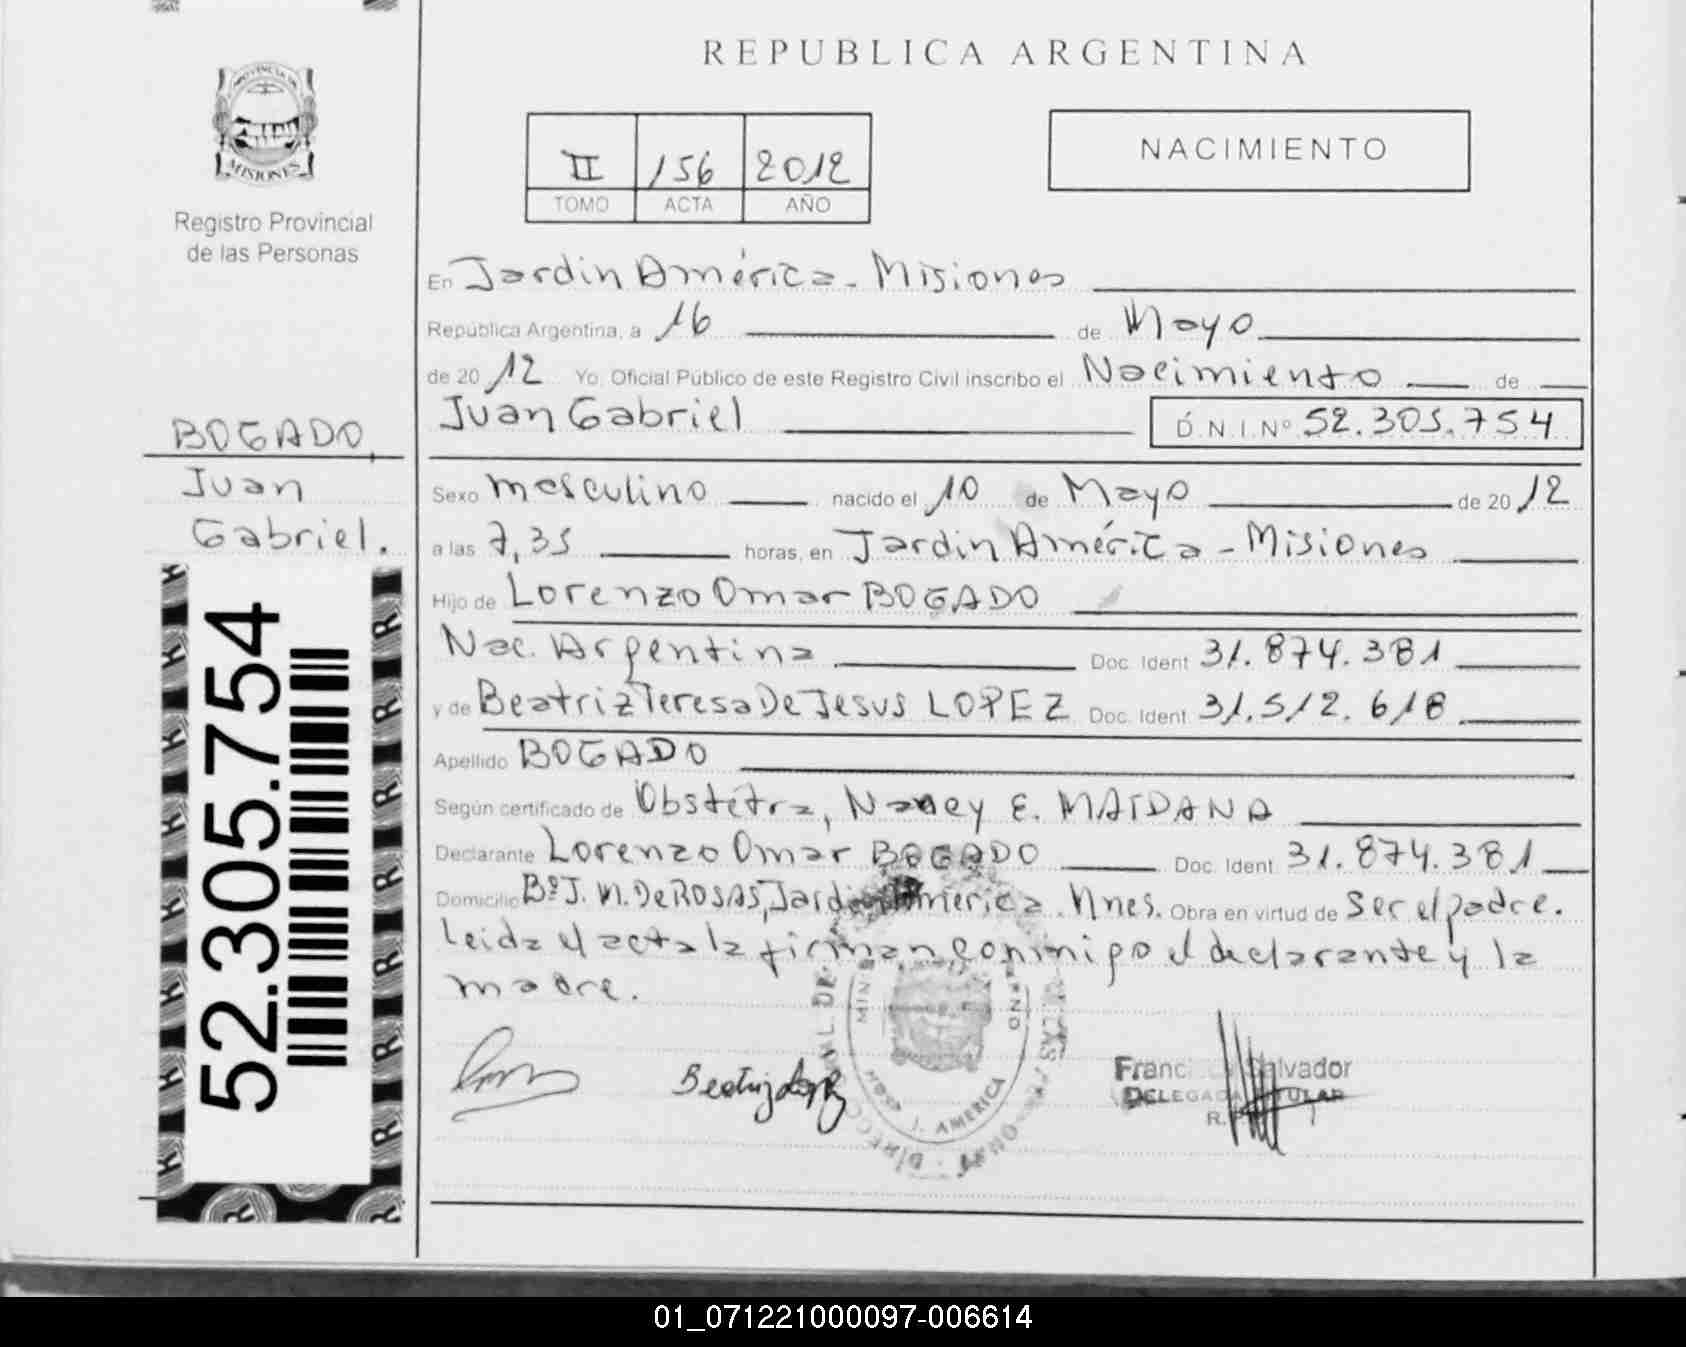 REPUBLICA ARGENTINA
PROVINCIA DE
MISIONES
Registro Provincial
de las Personas
II 156 2012
TOMO ACTA AÑO
NACIMIENTO
En Jardin América - Misiones
República Argentina, a 16 de Mayo
de 20 12 Yo, Oficial Público de este Registro Civil inscribo el Nacimiento de
Juan Gabriel D.N.I.Nº 52.305.754
BOGADO,
Juan
Gabriel.
Sexo masculino nacido el 10 de Mayo de 20 12
a las 7,35 horas, en Jardin América - Misiones
Hijo de Lorenzo Omar BOGADO
Nac. Argentina Doc. Ident 31.874.381
y de Beatriz Teresa De Jesus LOPEZ Doc. Ident 31.512.618
Apellido BOGADO
Según certificado de Obstétra, Nancy E. MAIDANA
Declarante Lorenzo Omar BOGADO Doc. Ident 31.874.381
Domicilio Bº J. M. De ROSAS, Jardin America Mnes. Obra en virtud de ser el padre.
Leida el acta la firman conmigo el declarante y la
madre.
52.305.754
Beatriz Lopez
J. AMERICA
Salvador
DELEGADO TITULAR
01_071221000097-006614